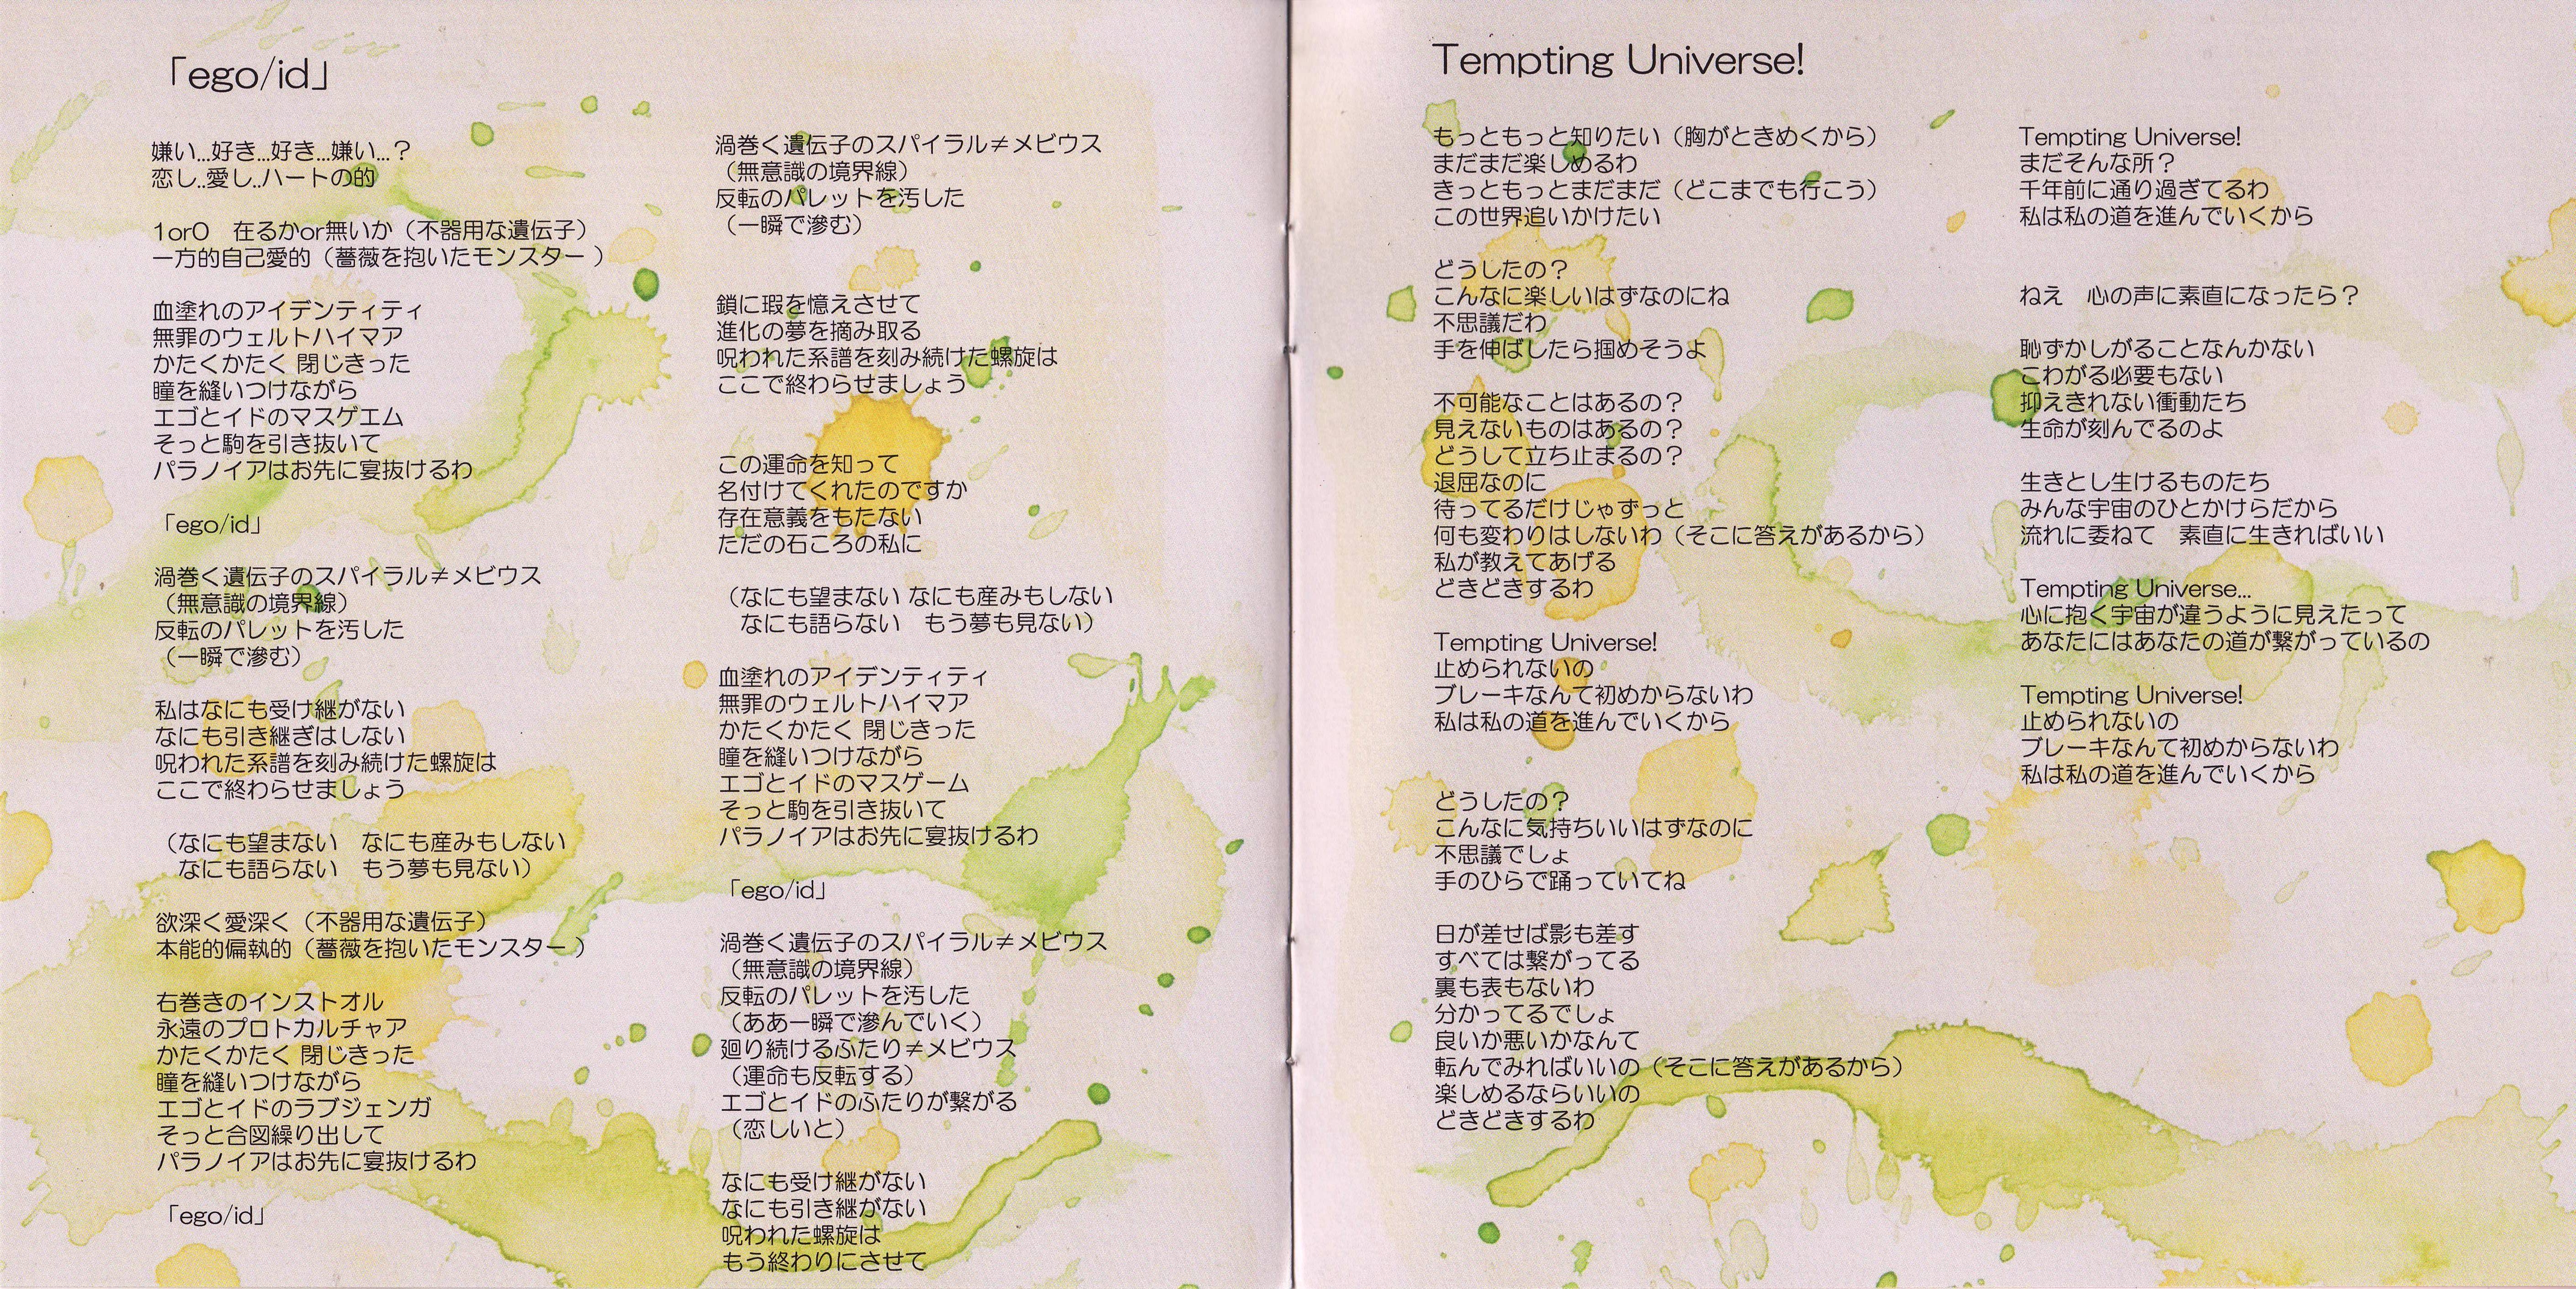 「ego/id」
嫌い...好き...好き...嫌い...？
恋し..愛し..ハートの的
1or0　在るかor無いか（不器用な遺伝子）
一方的自己愛的（薔薇を抱いたモンスター ）
血塗れのアイデンティティ
無罪のウェルトハイマア
かたくかたく 閉じきった
瞳を縫いつけながら
エゴとイドのマスゲエム
そっと駒を引き抜いて
パラノイアはお先に宴抜けるわ
「ego/id」
渦巻く遺伝子のスパイラル≠メビウス
（無意識の境界線）
反転のパレットを汚した
（一瞬で滲む）
私はなにも受け継がない
なにも引き継ぎはしない
呪われた系譜を刻み続けた螺旋は
ここで終わらせましょう
（なにも望まない　なにも産みもしない
なにも語らない　もう夢も見ない）
欲深く愛深く（不器用な遺伝子）
本能的偏執的（薔薇を抱いたモンスター ）
右巻きのインストオル
永遠のプロトカルチャア
かたくかたく 閉じきった
瞳を縫いつけながら
エゴとイドのラブジェンガ
そっと合図繰り出して
パラノイアはお先に宴抜けるわ
「ego/id」
渦巻く遺伝子のスパイラル≠メビウス
（無意識の境界線）
反転のパレットを汚した
（一瞬で滲む）
鎖に瑕を憶えさせて
進化の夢を摘み取る
呪われた系譜を刻み続けた螺旋は
ここで終わらせましょう
この運命を知って
名付けてくれたのですか
存在意義をもたない
ただの石ころの私に
（なにも望まない なにも産みもしない
なにも語らない　もう夢も見ない）
血塗れのアイデンティティ
無罪のウェルトハイマア
かたくかたく 閉じきった
瞳を縫いつけながら
エゴとイドのマスゲーム
そっと駒を引き抜いて
パラノイアはお先に宴抜けるわ
「ego/id」
渦巻く遺伝子のスパイラル≠メビウス
（無意識の境界線）
反転のパレットを汚した
（ああ一瞬で滲んでいく）
廻り続けるふたり≠メビウス
（運命も反転する）
エゴとイドのふたりが繋がる
（恋しいと）
なにも受け継がない
なにも引き継がない
呪われた螺旋は
もう終わりにさせて
Tempting Universe!
もっともっと知りたい（胸がときめくから）
まだまだ楽しめるわ
きっともっとまだまだ（どこまでも行こう）
この世界追いかけたい
どうしたの？
こんなに楽しいはずなのにね
不思議だわ
手を伸ばしたら掴めそうよ
不可能なことはあるの？
見えないものはあるの？
どうして立ち止まるの？
退屈なのに
待ってるだけじゃずっと
何も変わりはしないわ（そこに答えがあるから）
私が教えてあげる
どきどきするわ
Tempting Universe!
止められないの
ブレーキなんて初めからないわ
私は私の道を進んでいくから
どうしたの？
こんなに気持ちいいはずなのに
不思議でしょ
手のひらで踊っていてね
日が差せば影も差す
すべては繋がってる
裏も表もないわ
分かってるでしょ
良いか悪いかなんて
転んでみればいいの（そこに答えがあるから）
楽しめるならいいの
どきどきするわ
Tempting Universe!
まだそんな所？
千年前に通り過ぎてるわ
私は私の道を進んでいくから
ねえ　心の声に素直になったら？
恥ずかしがることなんかない
こわがる必要もない
抑えきれない衝動たち
生命が刻んでるのよ
生きとし生けるものたち
みんな宇宙のひとかけらだから
流れに委ねて　素直に生きればいい
Tempting Universe...
心に抱く宇宙が違うように見えたって
あなたにはあなたの道が繋がっているの
Tempting Universe!
止められないの
ブレーキなんて初めからないわ
私は私の道を進んでいくから